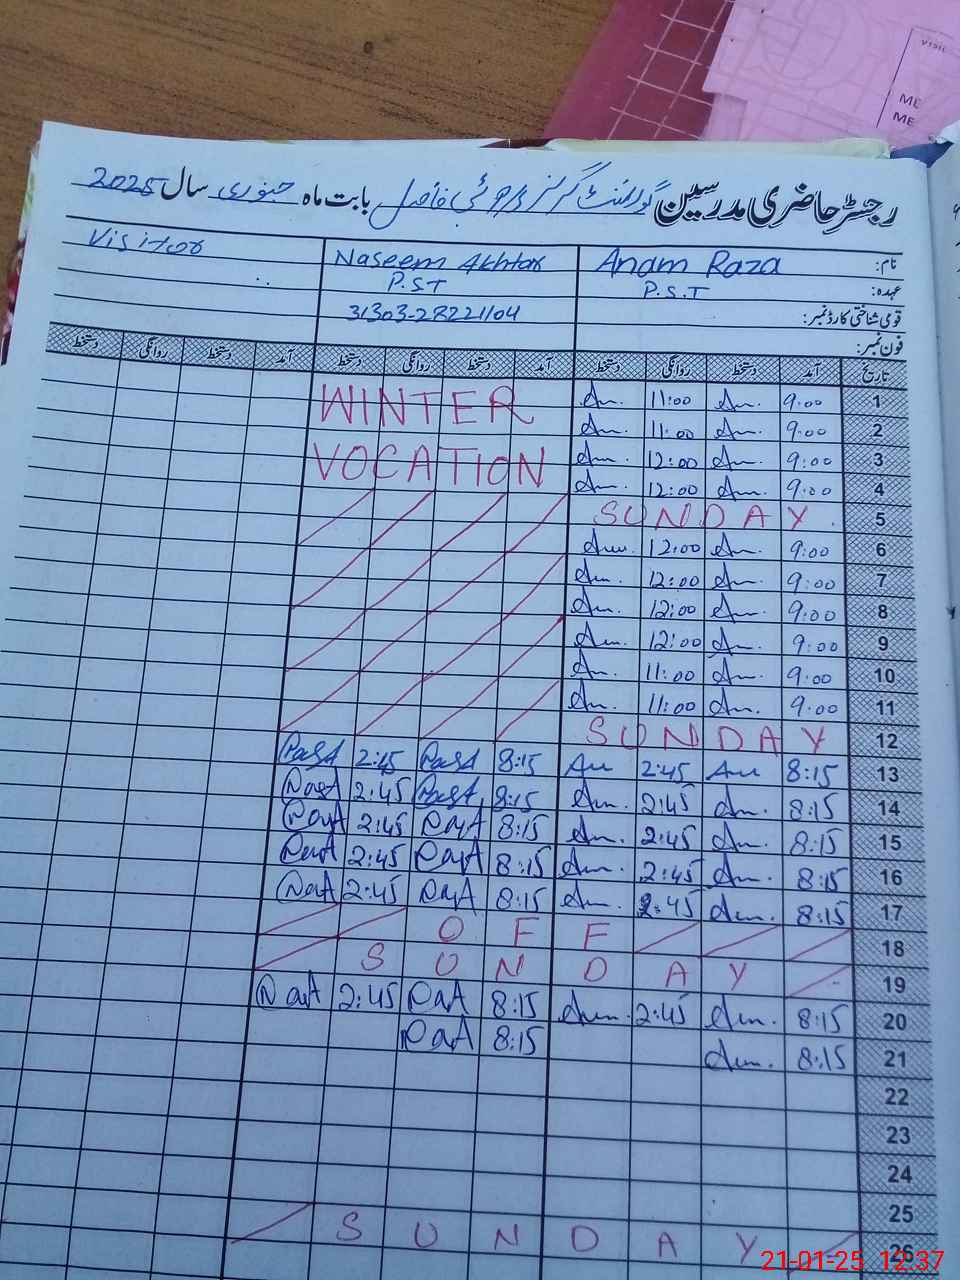 VISIT
ME
ME
رجسٹر حاضری مدرسین گورنمنٹ گرلز بابت ماہ جنوری سال 2025
نام: Anam Raza Naseem Akhtar Visitor
عہدہ: P.S.T P.ST
قومی شناختی کارڈ نمبر: 31303-2822104
فون نمبر:
تاریخ آمد دستخط روانگی دستخط آمد دستخط روانگی دستخط آمد دستخط روانگی دستخط
WINTER Am. 11:00 Am. 9:00 1
Am. 11:00 Am. 9:00 2
VOCATION Am. 12:00 Am. 9:00 3
Am. 12:00 Am. 9:00 4
SUNDAY 5
Am. 12:00 Am. 9:00 6
Am. 12:00 Am. 9:00 7
Am. 12:00 Am. 9:00 8
Am. 12:00 Am. 9:00 9
Am. 11:00 Am. 9:00 10
Am. 11:00 Am. 9:00 11
SUNDAY 12
2:45 8:15 2:45 8:15 13
2:45 8:15 Am. 2:45 Am. 8:15 14
2:45 8:15 Am. 2:45 Am. 8:15 15
2:45 8:15 Am. 2:45 Am. 8:15 16
2:45 8:15 Am. 2:45 Am. 8:15 17
OFF 18
SUNDAY 19
2:45 8:15 Am. 2:45 Am. 8:15 20
8:15 Am. 8:15 21
22
23
24
25
SUNDAY 26
21-01-25 12:37